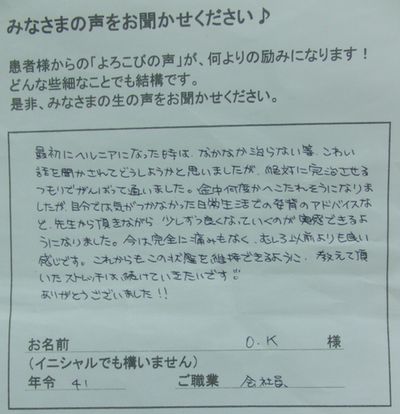 みなさまの声をお聞かせください♪
患者様からの「よろこびの声」が、何よりの励みになります！
どんな些細なことでも結構です。
是非、みなさまの生の声をお聞かせください。
最初にヘルニアになった時は、なかなか治らない等、こわい
話を聞かされてどうしようかと思いましたが、絶対に完治させる
つもりでがんばって通いました。途中何度かへこたれそうになりま
したが、自分では気がつかなかった日常生活での姿勢のアドバイスな
ど、先生から頂きながら 少しずつ良くなっていくのが実感できるよ
うになりました。今は完全に痛みもなく、むしろ以前よりも良い
感じです。これからもこの状態を維持できるように、教えて頂
いたストレッチは、続けていきたいです!!
ありがとうございました!!
お名前 O.K 様
(イニシャルでも構いません)
年令 41 ご職業 会社員